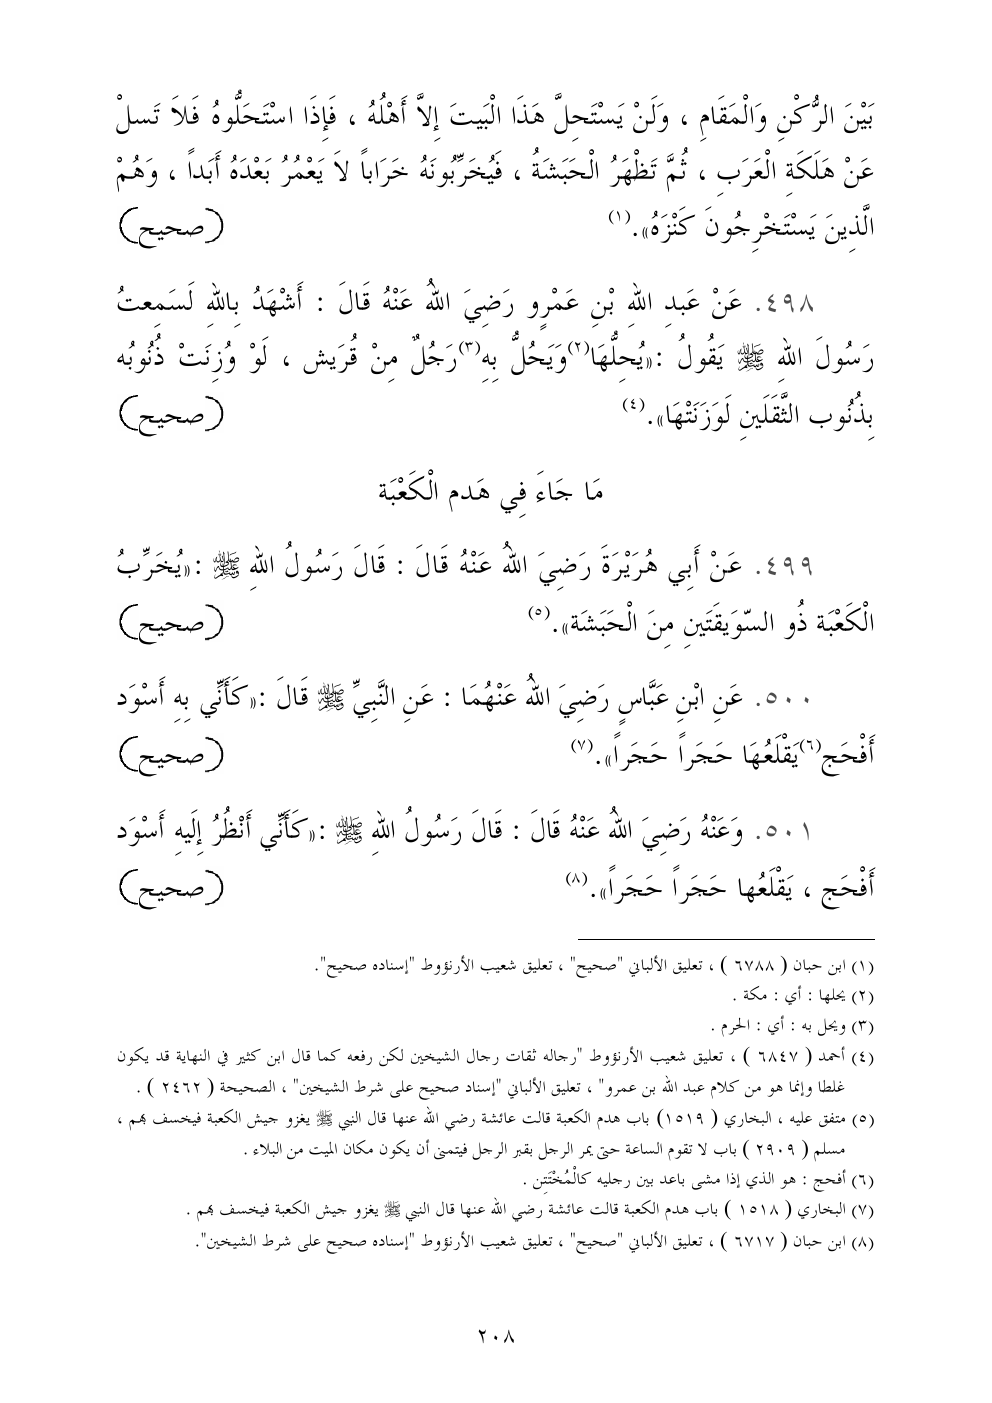 بَيْنَ الرُّكْنِ وَالْمَقَامِ ، وَلَنْ يَسْتَحِلَّ هَذَا الْبَيتَ إلاَّ أَهْلُهُ ، فَإِذَا اسْتَحَلُّوهُ فَلاَ تَسلْ
عَنْ هَلَكَةِ الْعَرَبِ ، ثُمَّ تَظْهَرُ الْحَبَشَةُ ، فَيُخَرِّبُونَهُ خَرَاباً لاَ يَعْمُرُ بَعْدَهُ أَبَداً ، وَهُمْ
الَّذِينَ يَسْتَخْرِجُونَ كَنْزَهُ».(١) (صحيح)
٤٩٨. عَنْ عَبدِ اللهِ بْنِ عَمْرٍو رَضِيَ اللهُ عَنْهُ قَالَ : أَشْهَدُ بِاللهِ لَسَمِعتُ
رَسُولَ اللهِ ﷺ يَقُولُ :«يُحِلُّهَا(٢)وَيَحُلُّ بِهِ(٣)رَجُلٌ مِنْ قُرَيش ، لَوْ وُزِنَتْ ذُنُوبُه
بِذُنُوب الثَّقَلَينِ لَوَزَنَتْهَا».(٤) (صحيح)
مَا جَاءَ فِي هَدم الْكَعْبَة
٤٩٩. عَنْ أَبِي هُرَيْرَةَ رَضِيَ اللهُ عَنْهُ قَالَ : قَالَ رَسُولُ اللهِ ﷺ :«يُخَرِّبُ
الْكَعْبَة ذُو السّوَيقَتَينِ مِنَ الْحَبَشَة».(٥) (صحيح)
٥٠٠. عَنِ ابْنِ عَبَّاسٍ رَضِيَ اللهُ عَنْهُمَا : عَنِ النَّبِيِّ ﷺ قَالَ :«كَأَنِّي بِهِ أَسْوَد
أَفْحَج(٦)يَقْلَعُهَا حَجَراً حَجَراً».(٧) (صحيح)
٥٠١. وَعَنْهُ رَضِيَ اللهُ عَنْهُ قَالَ : قَالَ رَسُولُ اللهِ ﷺ :«كَأَنِّي أَنْظُرُ إِلَيهِ أَسْوَد
أَفْحَج ، يَقْلَعُها حَجَراً حَجَراً».(٨) (صحيح)
(١) ابن حبان ( ٦٧٨٨ ) ، تعليق الألباني "صحيح" ، تعليق شعيب الأرنؤوط "إسناده صحيح".
(٢) يحلها : أي : مكة .
(٣) ويحل به : أي : الحرم .
(٤) أحمد ( ٦٨٤٧ ) ، تعليق شعيب الأرنؤوط "رجاله ثقات رجال الشيخين لكن رفعه كما قال ابن كثير في النهاية قد يكون
غلطا وإنما هو من كلام عبد الله بن عمرو" ، تعليق الألباني "إسناد صحيح على شرط الشيخين" ، الصحيحة ( ٢٤٦٢ ) .
(٥) متفق عليه ، البخاري ( ١٥١٩) باب هدم الكعبة قالت عائشة رضي الله عنها قال النبي ﷺ يغزو جيش الكعبة فيخسف بهم ،
مسلم ( ٢٩٠٩ ) باب لا تقوم الساعة حتى يمر الرجل بقبر الرجل فيتمنى أن يكون مكان الميت من البلاء .
(٦) أفحج : هو الذي إذا مشى باعد بين رجليه كالْمُخْتَتِن .
(٧) البخاري ( ١٥١٨ ) باب هدم الكعبة قالت عائشة رضي الله عنها قال النبي ﷺ يغزو جيش الكعبة فيخسف بهم .
(٨) ابن حبان ( ٦٧١٧ ) ، تعليق الألباني "صحيح" ، تعليق شعيب الأرنؤوط "إسناده صحيح على شرط الشيخين".
٢٠٨